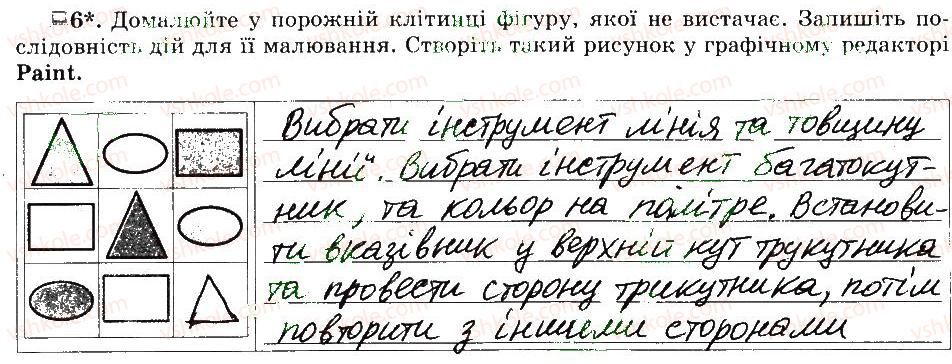 6*. Домалюйте у порожній клітинці фігуру, якої не вистачає. Запишіть по-
слідовність дій для її малювання. Створіть такий рисунок у графічному редакторі
Paint.
Вибрати інструмент лінія та товщину
ліній. Вибрати інструмент багатокут-
ник, та кольор на політре. Встанови-
ти вказівник у верхній кут трукутника
та провести сторону трикутника, потім
повторити з іншими сторонами